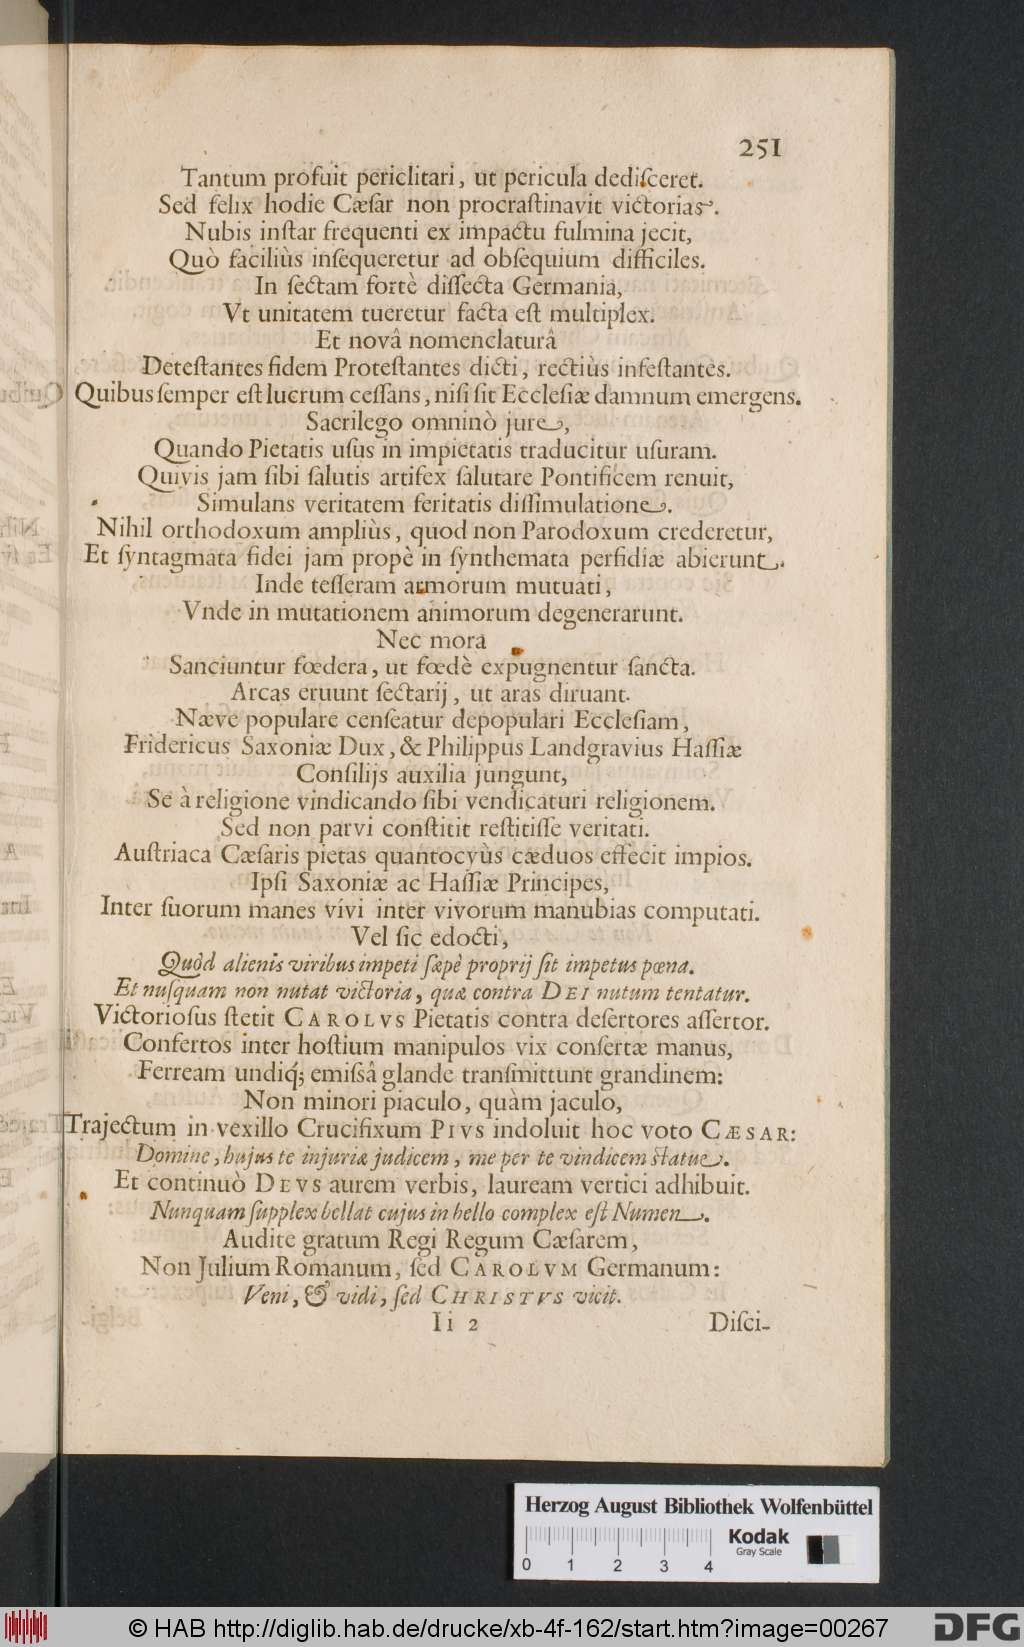 251
Tantum profuit periclitari, ut pericula dediſceret.
Sed felix hodie Cæſar non procraſtinavit victorias.
Nubis inſtar frequenti ex impactu fulmina jecit,
Quò faciliùs inſequeretur ad obſequium difficiles.
In ſectam fortè diſſecta Germania,
Vt unitatem tueretur facta eſt multiplex.
Et novâ nomenclaturâ
Deteſtantes fidem Proteſtantes dicti, rectiùs infeſtantes.
Quibus ſemper eſt lucrum ceſſans, niſi ſit Eccleſiæ damnum emergens.
Sacrilego omninò jure,
Quando Pietatis uſus in impietatis traducitur uſuram.
Quivis jam ſibi ſalutis artifex ſalutare Pontificem renuit,
Simulans veritatem feritatis diſſimulatione.
Nihil orthodoxum ampliùs, quod non Parodoxum crederetur,
Et ſyntagmata fidei jam propè in ſynthemata perfidiæ abierunt.
Inde teſſeram armorum mutuati,
Vnde in mutationem animorum degenerarunt.
Nec mora
Sanciuntur fœdera, ut fœdè expugnentur ſancta.
Arcas eruunt ſectarij, ut aras diruant.
Næve populare cenſeatur depopulari Eccleſiam,
Fridericus Saxoniæ Dux, & Philippus Landgravius Haſſiæ
Conſilijs auxilia jungunt,
Se à religione vindicando ſibi vendicaturi religionem.
Sed non parvi conſtitit reſtitiſſe veritati.
Auſtriaca Cæſaris pietas quantocyùs cæduos effecit impios.
Ipſi Saxoniæ ac Haſſiæ Principes,
Inter ſuorum manes vivi inter vivorum manubias computati.
Vel ſic edocti,
Quòd alienis viribus impeti ſæpè proprij ſit impetus pœna.
Et nuſquam non nutat victoria, quæ contra DEI nutum tentatur.
Victorioſus ſtetit CAROLVS Pietatis contra deſertores aſſertor.
Confertos inter hoſtium manipulos vix conſertæ manus,
Ferream undiq́; emiſsâ glande tranſmittunt grandinem:
Non minori piaculo, quàm jaculo,
Trajectum in vexillo Crucifixum PIVS indoluit hoc voto CÆSAR:
Domine, hujus te injuriæ judicem, me per te vindicem ſtatue.
Et continuò DEVS aurem verbis, lauream vertici adhibuit.
Nunquam ſupplex bellat cujus in bello complex eſt Numen.
Audite gratum Regi Regum Cæſarem,
Non Julium Romanum, ſed CAROLVM Germanum:
Veni, & vidi, ſed CHRISTVS vicit.
Ii 2 Diſci-
Herzog August Bibliothek Wolfenbüttel
0 1 2 3 4
Kodak
Gray Scale
© HAB http://diglib.hab.de/drucke/xb-4f-162/start.htm?image=00267
DFG